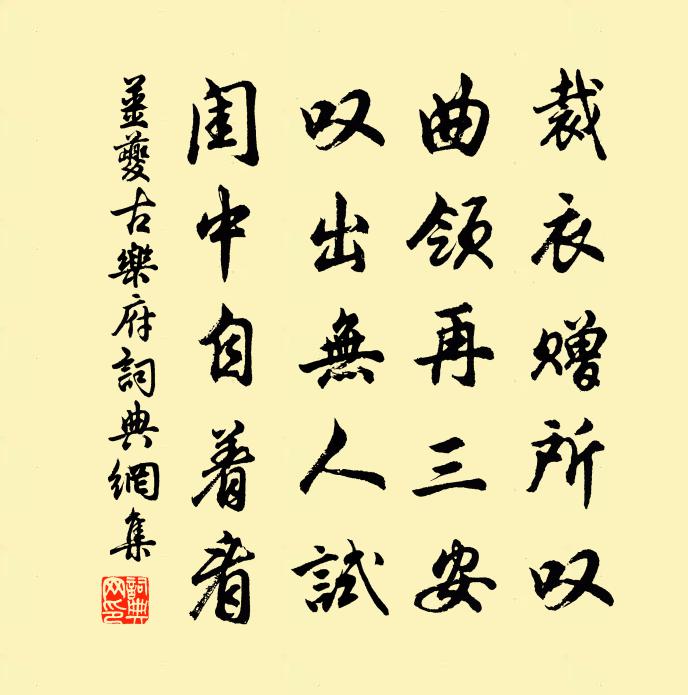 裁衣赠所叹
曲领再三安
叹出無人試
闺中自着看
薑夔古樂府詞典網集
詞典
网印